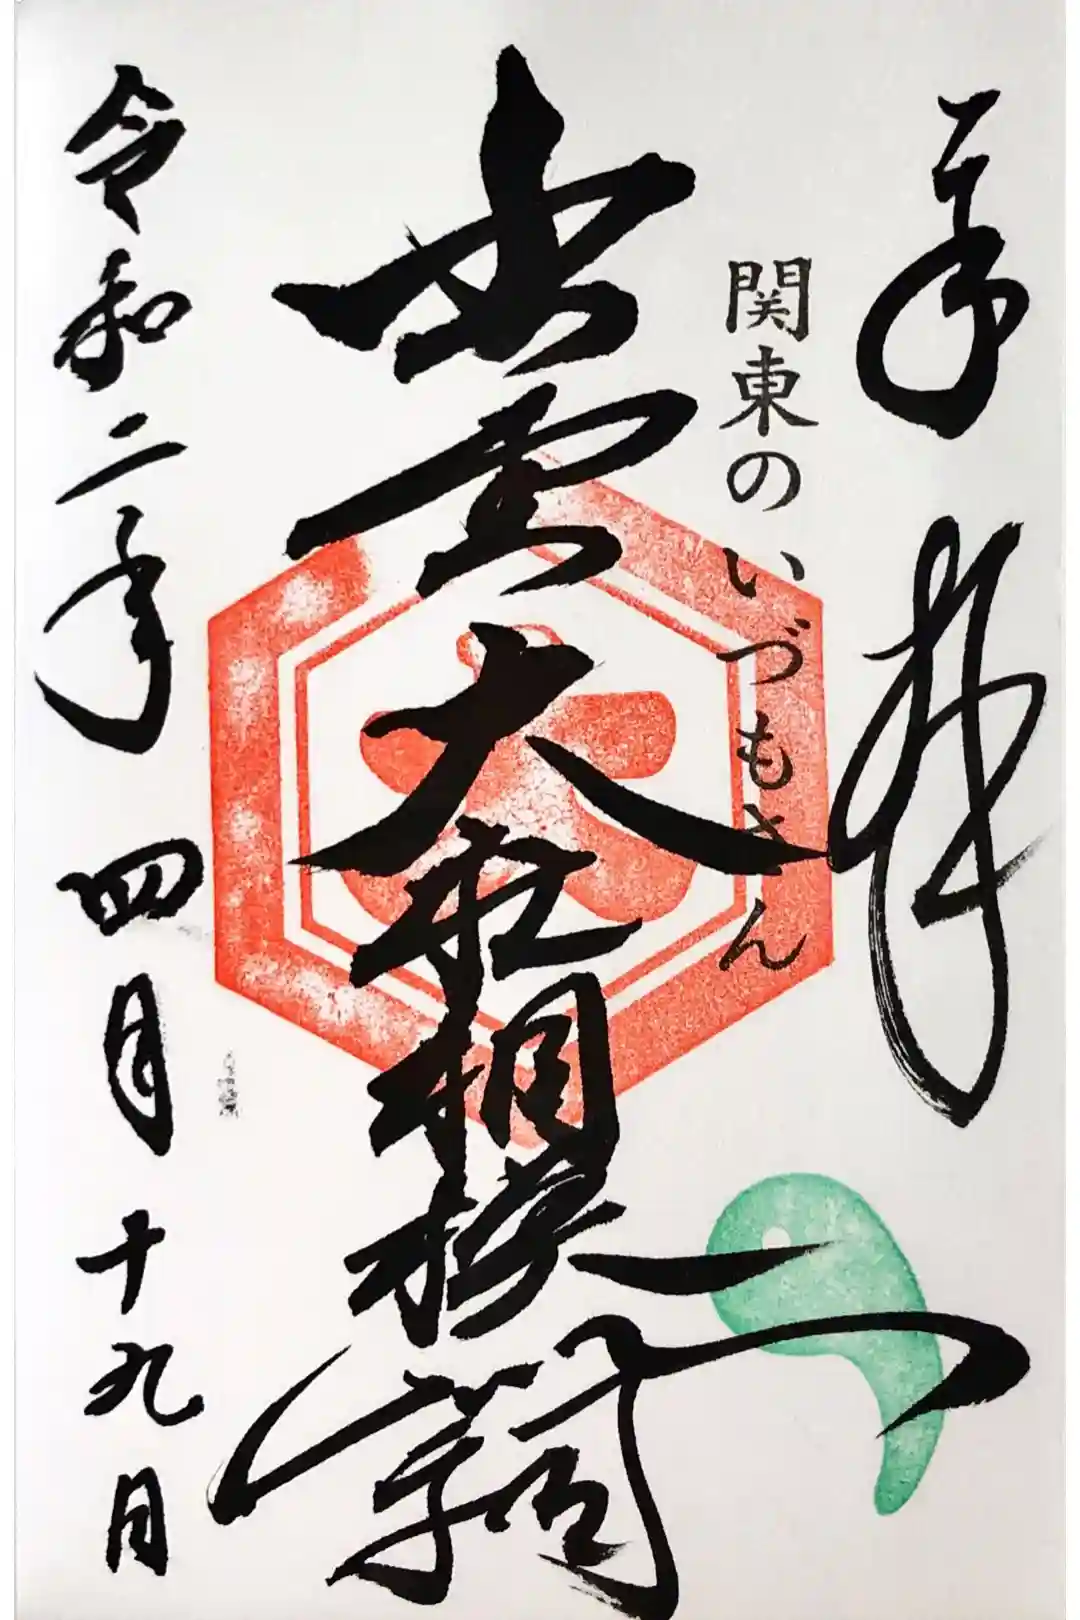 奉拝
関東のいづもさん
出雲大社相模分祠
令和二年四月十九日